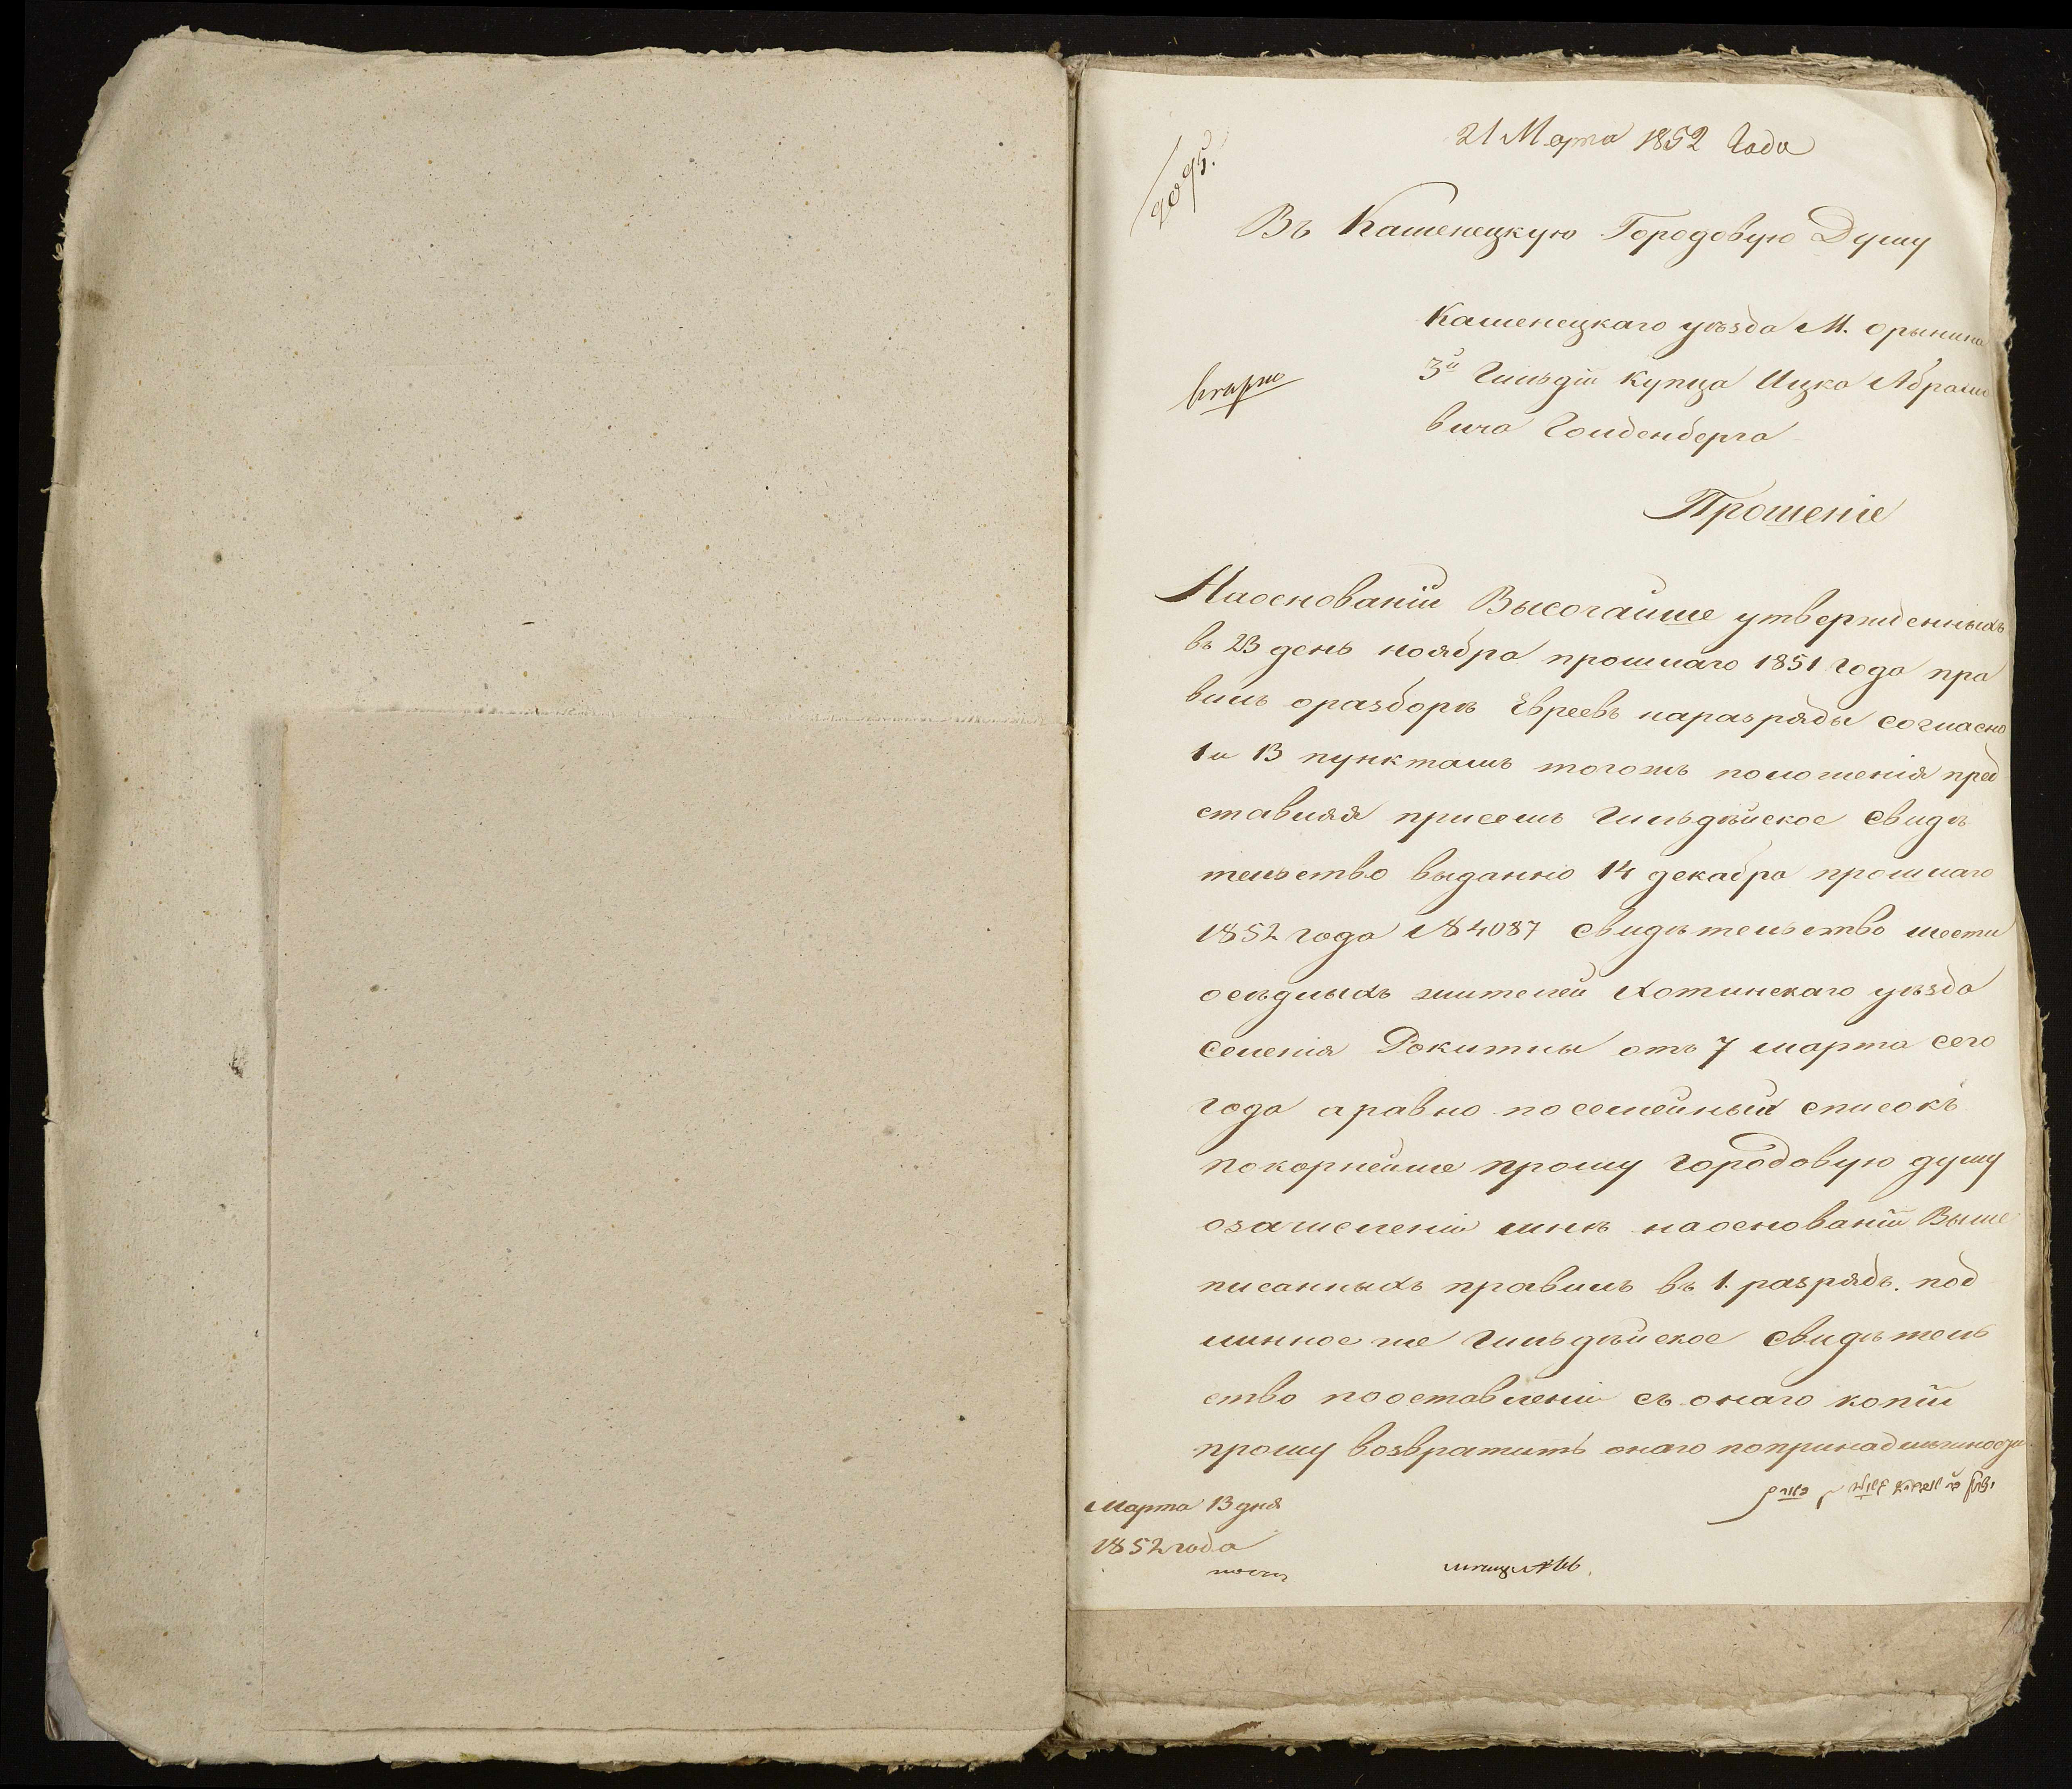 21 Марта 1852 Года
2095.
Въ Каменецкую Городовую Думу
Каменецкаго уѣзда М. Орынина
3й Гильдіи Купца Ицка Абрамо
вича Голденберга
Прошеніе
Наоснованіи Высочайше утвержденныхъ
въ 23 день ноября прошлаго 1851 года пра
вилъ оразборѣ Евреевъ наразряды согласно
1 и 13 пунктамъ тогожъ положенія пред
ставляя присемъ Гильдѣйское Свидѣ
тельство выданно 14 декабря прошлаго
1852 года № 4087 Свидѣтельство шести
осѣдлыхъ жителей Хотинскаго уѣзда
Селенія Рокитны отъ 7 марта сего
года а равно посемейный списокъ
покорнейше прошу Городовую думу
озачисленіи мнѣ наоснованіи Выше
писанныхъ правилъ въ 1. разрядъ. под
линное же Гильдѣйское Свидѣтель
ство пооставленіи съ онаго копіи
прошу возвратить онаго попринадлежности
Марта 13 дня
1852 года